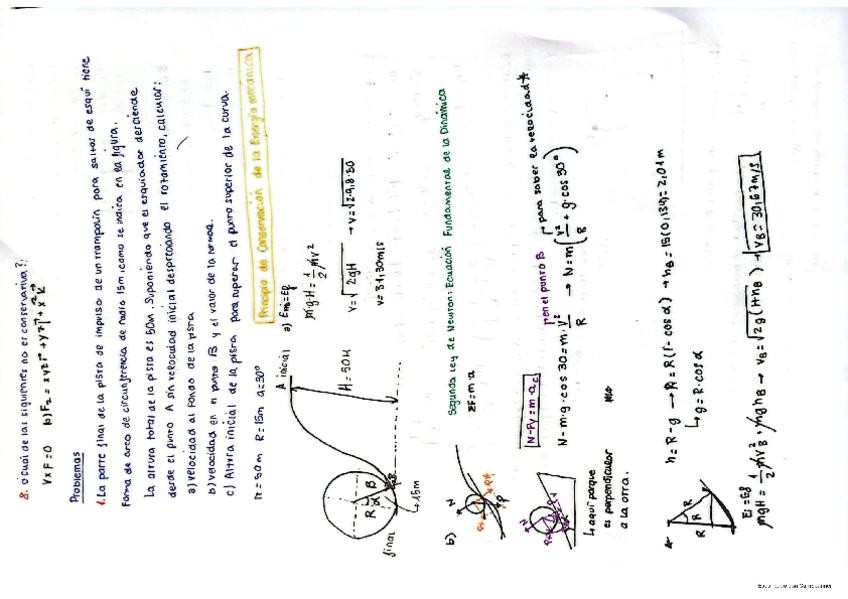 8. ¿Cuál de las siguientes no es conservativa?:
∇xF=0 b) F₂ = xyz i + yz j + x² k
Problemas
1. La parte final de la pista de impulso de un trampolín para saltos de esquí tiene
forma de arco de circunferencia de radio 15m, como se indica en la figura.
La altura total de la pista es 50m. Suponiendo que el esquiador desciende
desde el punto A sin velocidad inicial despreciando el rozamiento, calcular:
a) Velocidad al fondo de la pista
b) Velocidad en el punto B y el valor de la normal.
c) Altura inicial de la pista para superar el punto superior de la curva.
H=50m R=15m α=30°
Principio de Conservación de la Energía mecánica
A inicial
H=50m
R
α
B
15m
final
a)
mgH = 1/2 mv²
v = √2gH → v = √2·9,8·50
v = 31,30m/s
b)
Segunda Ley de Newton: Ecuación Fundamental de la Dinámica
ΣF = m·a
N
N-Py = m·ac
en el punto B
para saber la velocidad *
N - m·g·cos 30 = m·v²/R → N = m(v²/R + g·cos 30°)
aquí porque
es perpendicular
a la otra.
*
R
R
h = R-g → h = R(1-cos α) → hB = 15(0,134) = 2,01m
g = R·cos α
mgH = 1/2 mv²B + mghB → vB = √2g(H-hB) → vB = 30,67m/s